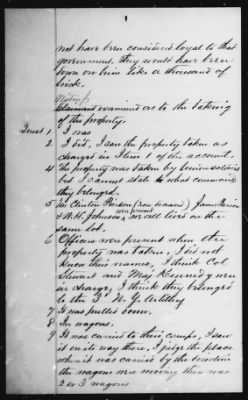 not have been considered loyal to that
government. they would have been
down on him like a thousand of
brick.
Claimant examined as to the taking
of the property.
Quest 1 I was
2 I did, I saw the property taken as
charged in Item 1 of the account.
4 The property was taken by Union soldiers
but I cannot state to what command
they belonged.
5 Clinton Pierson (now deceased) James
& W.H. Johnson were present we all lived on the
same lot.
6 Officers were present when the
property was taken, I do not
know their names, I think Col
Stewart and Maj Kennedy were
in charge, I think they belonged
to the 3d N.Y. Artillery
7 It was pulled down.
8 In wagons.
9 It was carried to their camps, I saw
it on its way there, I judge the place
where it was carried by the direction
the wagons were moving there was
2 or 3 wagons